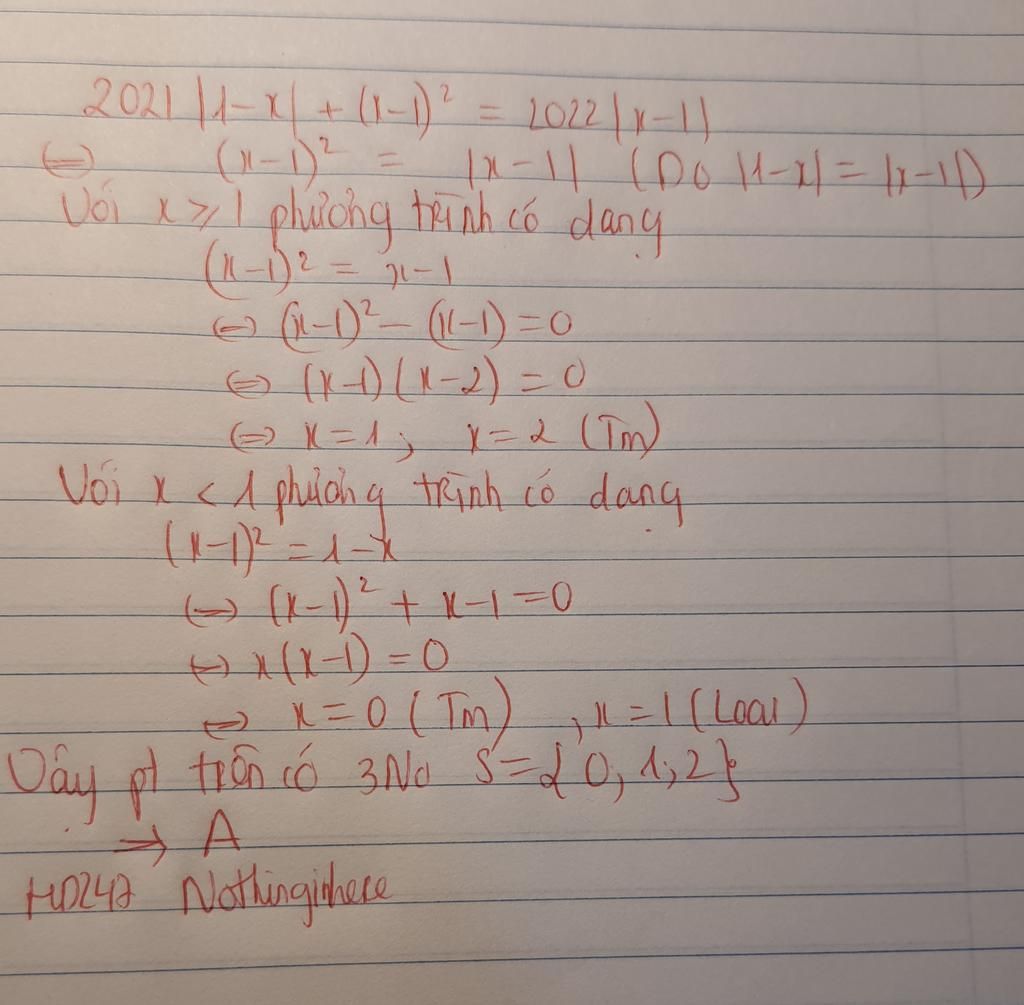 2021 |1-x| + (x-1)² = 2022 |x-1|
⇔ (x-1)² = |x-1| (Do |1-x| = |x-1|)
Với x ⩾ 1 phương trình có dạng
(x-1)² = x-1
⇔ (x-1)² - (x-1) = 0
⇔ (x-1)(x-2) = 0
⇔ x = 1; x = 2 (Tm)
Với x < 1 phương trình có dạng
(x-1)² = 1-x
⇔ (x-1)² + x-1 = 0
⇔ x(x-1) = 0
⇔ x = 0 (Tm) , x = 1 (Loại)
Vậy pt trên có 3 No S = {0; 1; 2}
→ A
HD247 Nothinginhere